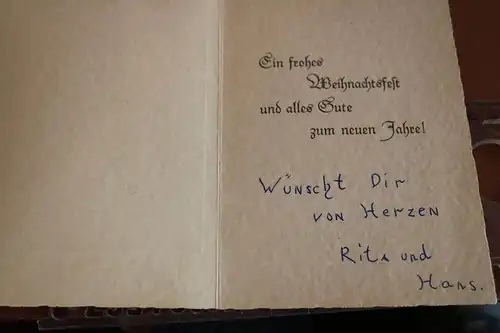 Ein frohes
Weihnachtsfest
und alles Gute
zum neuen Jahre!
Wünscht Dir
von Herzen
Rita und
Hans.